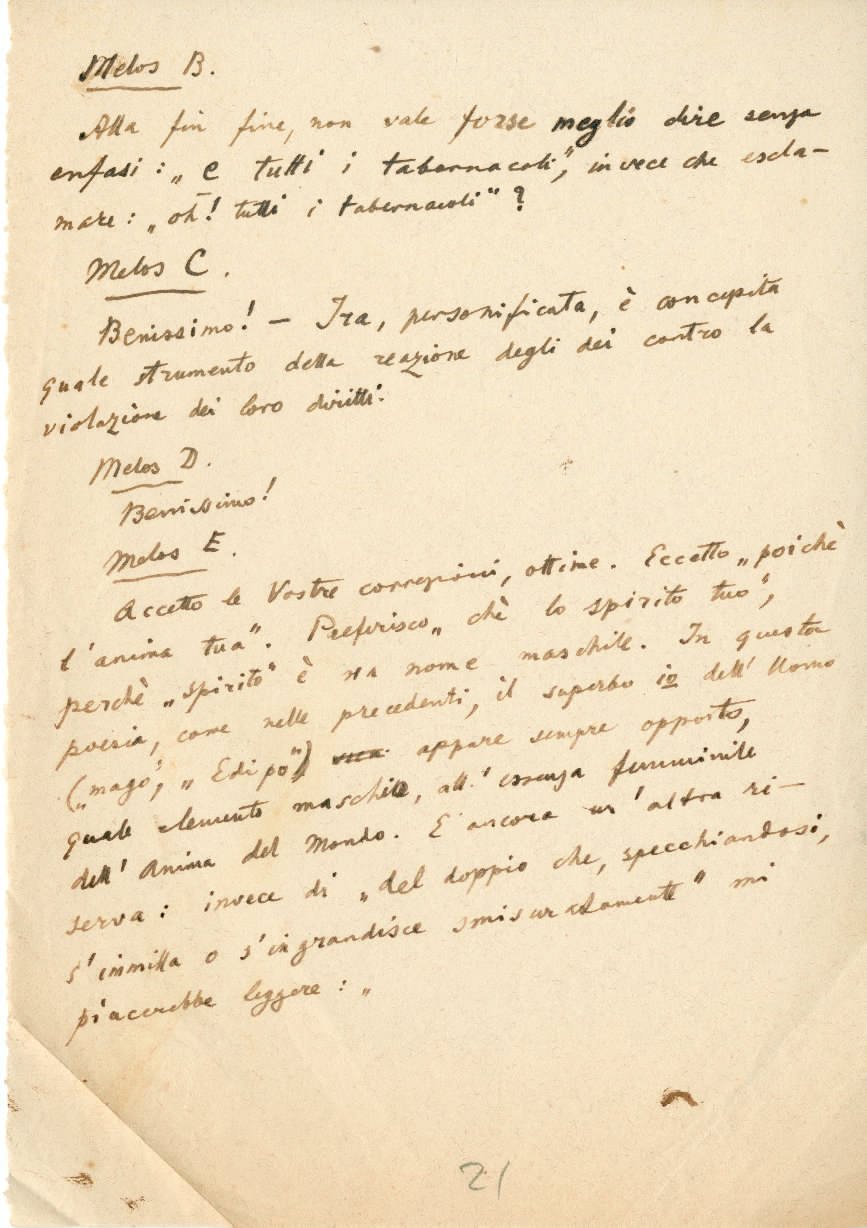 Melos B.
Alla fin fine, non vale forse meglio dire senza
enfasi: „e tutti i tabernacoli“, invece che escla-
mare: „oh! tutti i tabernacoli“?
Melos C.
Benissimo! — Ira, personificata, è concepita
quale strumento della reazione degli dei contro la
violazione dei loro diritti.
Melos D.
Benissimo!
Melos E.
Accetto le Vostre correzioni, ottime. Eccetto „poichè
l'anima tua“. Preferisco „chè lo spirito tuo“,
perchè „spirito“ è un nome maschile. In questa
poesia, come nelle precedenti, il superbo io dell'Uomo
(„mago“, „Edipo“) appare sempre opposto,
quale elemento maschile, all'essenza femminile
dell'Anima del Mondo. E ancora un'altra ri-
serva: invece di „del doppio che, specchiandosi,
s'immilla o s'ingrandisce smisuratamente“ mi
piacerebbe leggere: „
21